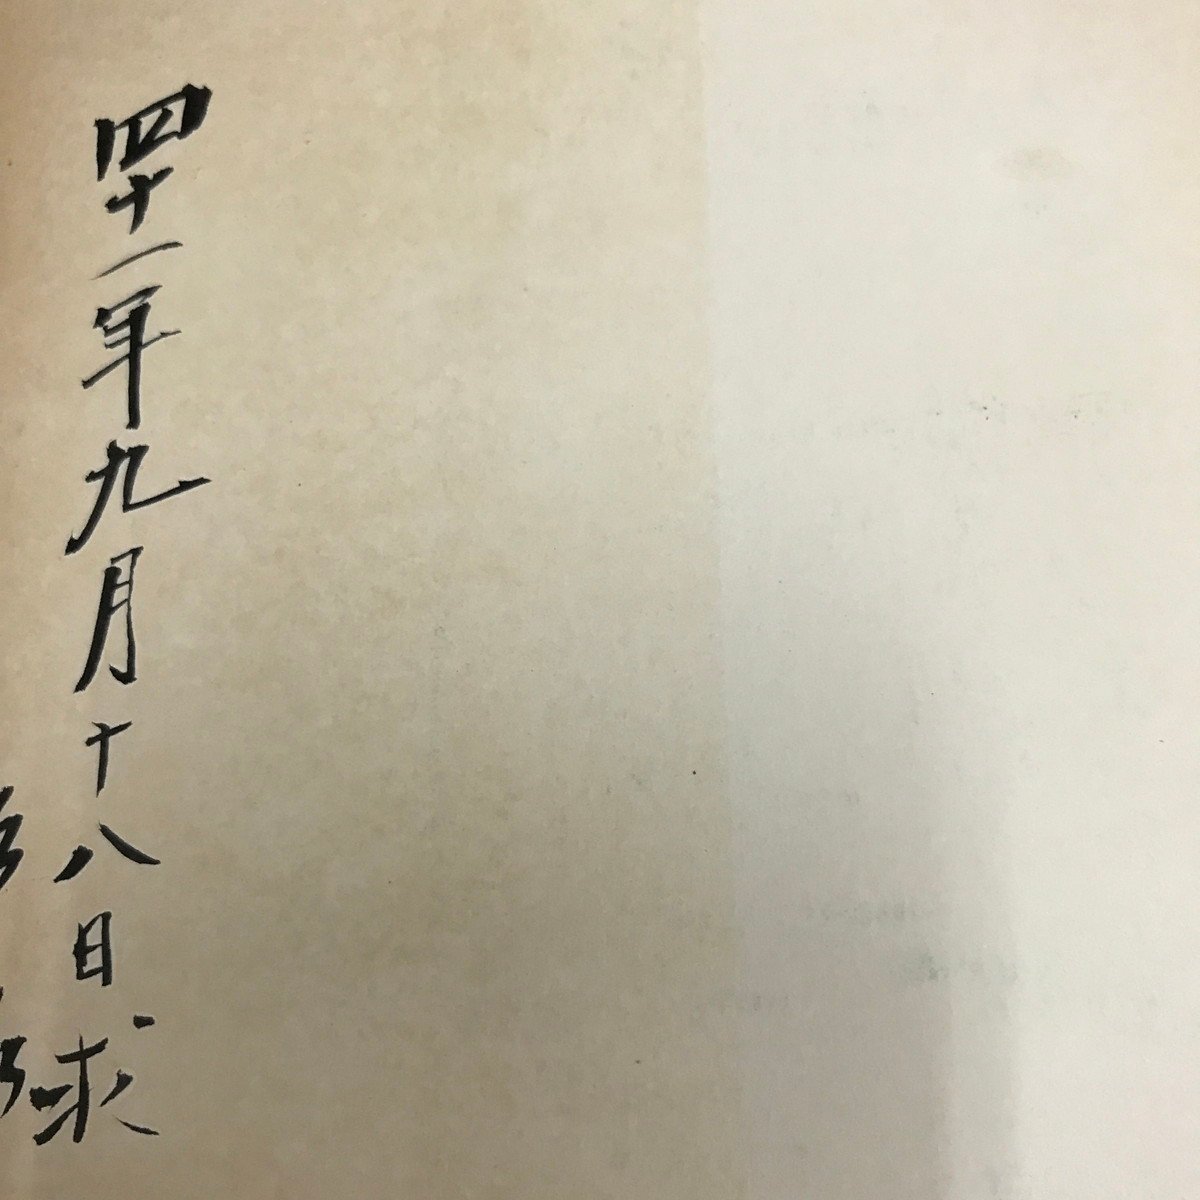 四十一年九月十八日求